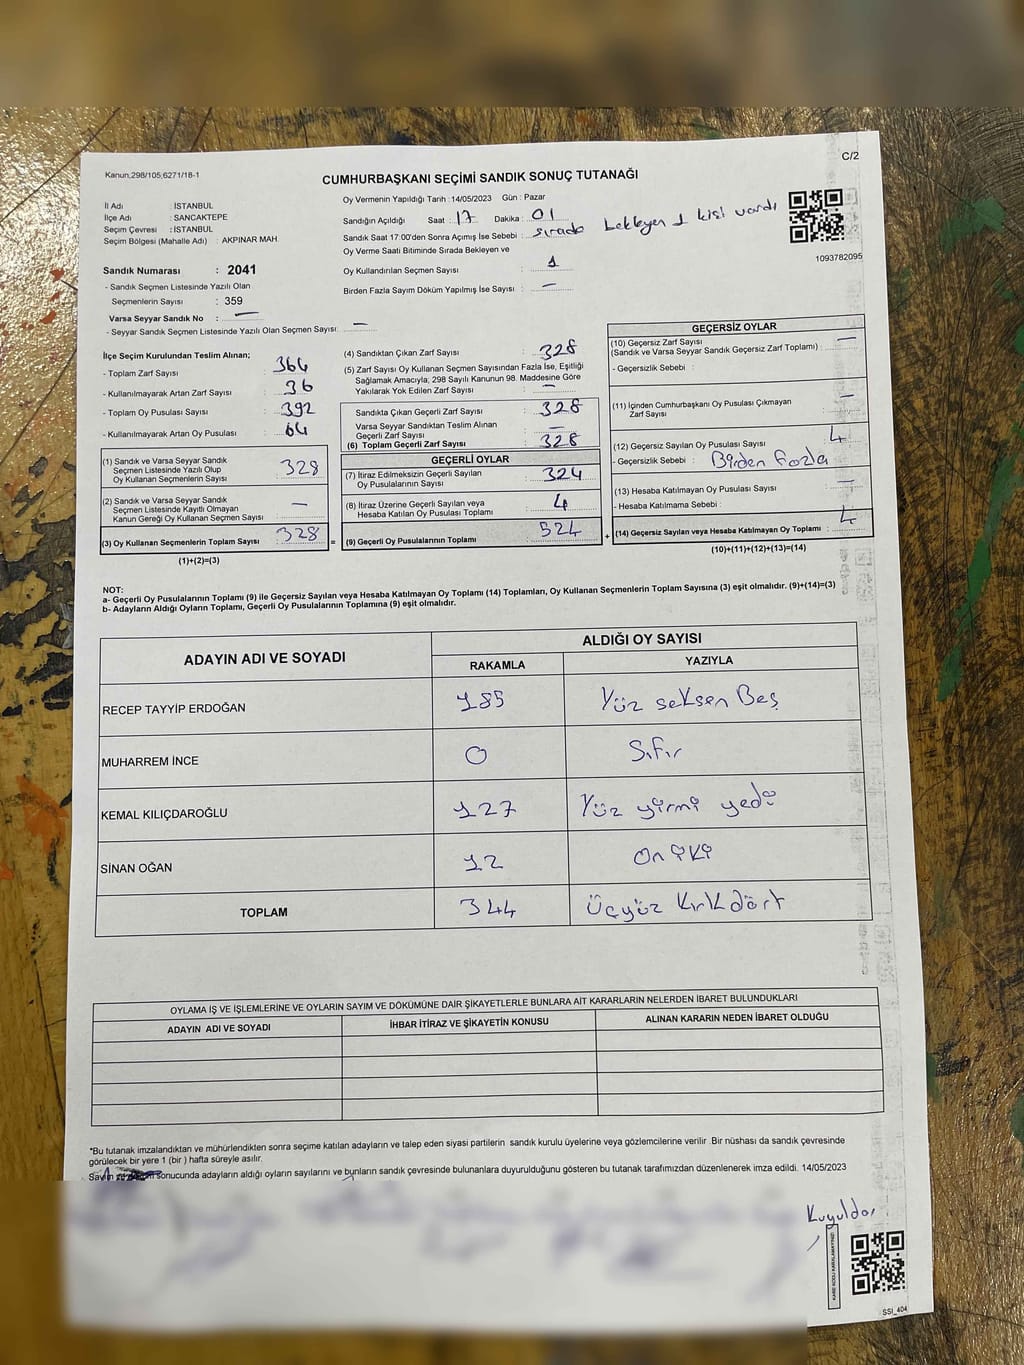 Kanun,298/105,6271/18-1
C/2
CUMHURBAŞKANI SEÇİMİ SANDIK SONUÇ TUTANAĞI
İl Adı : İSTANBUL
İlçe Adı : SANCAKTEPE
Seçim Çevresi : İSTANBUL
Seçim Bölgesi (Mahalle Adı) : AKPINAR MAH.
Sandık Numarası : 2041
- Sandık Seçmen Listesinde Yazılı Olan
Seçmenlerin Sayısı : 359
Varsa Seyyar Sandık No : —
- Seyyar Sandık Seçmen Listesinde Yazılı Olan Seçmen Sayısı : —
Oy Vermenin Yapıldığı Tarih : 14/05/2023 Gün : Pazar
Sandığın Açıldığı Saat : 17 Dakika : 01
Sandık Saat 17:00'den Sonra Açımış İse Sebebi : sırada bekleyen 1 kişi vardı
Oy Verme Saati Bitiminde Sırada Bekleyen ve
Oy Kullandırılan Seçmen Sayısı : 1
Birden Fazla Sayım Döküm Yapılmış İse Sayısı : —
1093782095
İlçe Seçim Kurulundan Teslim Alınan;
- Toplam Zarf Sayısı : 364
- Kullanılmayarak Artan Zarf Sayısı : 36
- Toplam Oy Pusulası Sayısı : 392
- Kullanılmayarak Artan Oy Pusulası : 64
(1) Sandık ve Varsa Seyyar Sandık
Seçmen Listesinde Yazılı Olup
Oy Kullanan Seçmenlerin Sayısı : 328
(2) Sandık ve Varsa Seyyar Sandık
Seçmen Listesinde Kayıtlı Olmayan
Kanun Gereği Oy Kullanan Seçmen Sayısı : —
(3) Oy Kullanan Seçmenlerin Toplam Sayısı : 328
(1)+(2)=(3)
(4) Sandıktan Çıkan Zarf Sayısı : 328
(5) Zarf Sayısı Oy Kullanan Seçmen Sayısından Fazla İse, Eşitliği
Sağlamak Amacıyla; 298 Sayılı Kanunun 98. Maddesine Göre
Yakılarak Yok Edilen Zarf Sayısı : —
Sandıkta Çıkan Geçerli Zarf Sayısı : 328
Varsa Seyyar Sandıktan Teslim Alınan
Geçerli Zarf Sayısı : —
(6) Toplam Geçerli Zarf Sayısı : 328
GEÇERLİ OYLAR
(7) İtiraz Edilmeksizin Geçerli Sayılan
Oy Pusulalarının Sayısı : 324
(8) İtiraz Üzerine Geçerli Sayılan veya
Hesaba Katılan Oy Pusulası Toplamı : 4
= (9) Geçerli Oy Pusulalarının Toplamı : 524
GEÇERSİZ OYLAR
(10) Geçersiz Zarf Sayısı : —
(Sandık ve Varsa Seyyar Sandık Geçersiz Zarf Toplamı)
- Geçersizlik Sebebi :
(11) İçinden Cumhurbaşkanı Oy Pusulası Çıkmayan
Zarf Sayısı : —
(12) Geçersiz Sayılan Oy Pusulası Sayısı : 4
- Geçersizlik Sebebi : Birden fazla
(13) Hesaba Katılmayan Oy Pusulası Sayısı : —
- Hesaba Katılmama Sebebi :
+ (14) Geçersiz Sayılan veya Hesaba Katılmayan Oy Toplamı : 4
(10)+(11)+(12)+(13)=(14)
NOT:
a- Geçerli Oy Pusulalarının Toplamı (9) ile Geçersiz Sayılan veya Hesaba Katılmayan Oy Toplamı (14) Toplamları, Oy Kullanan Seçmenlerin Toplam Sayısına (3) eşit olmalıdır. (9)+(14)=(3)
b- Adayların Aldığı Oyların Toplamı, Geçerli Oy Pusulalarının Toplamına (9) eşit olmalıdır.
ADAYIN ADI VE SOYADI
ALDIĞI OY SAYISI
RAKAMLA YAZIYLA
RECEP TAYYİP ERDOĞAN 185 Yüz seksen Beş
MUHARREM İNCE 0 Sıfır
KEMAL KILIÇDAROĞLU 127 Yüz yirmi yedi
SİNAN OĞAN 12 On iki
TOPLAM 344 Üçyüz kırk dört
OYLAMA İŞ VE İŞLEMLERİNE VE OYLARIN SAYIM VE DÖKÜMÜNE DAİR ŞİKAYETLERLE BUNLARA AİT KARARLARIN NELERDEN İBARET BULUNDUKLARI
ADAYIN ADI VE SOYADI İHBAR İTİRAZ VE ŞİKAYETİN KONUSU ALINAN KARARIN NEDEN İBARET OLDUĞU
*Bu tutanak imzalandıktan ve mühürlendikten sonra seçime katılan adayların ve talep eden siyasi partilerin sandık kurulu üyelerine veya gözlemcilerine verilir .Bir nüshası da sandık çevresinde
görülecek bir yere 1 (bir ) hafta süreyle asılır.
Sayım sonucunda adayların aldığı oyların sayılarını ve bunların sandık çevresinde bulunanlara duyurulduğunu gösteren bu tutanak tarafımızdan düzenlenerek imza edildi. 14/05/2023
KARE KODU KARALAMAYINIZ!
SSI_404